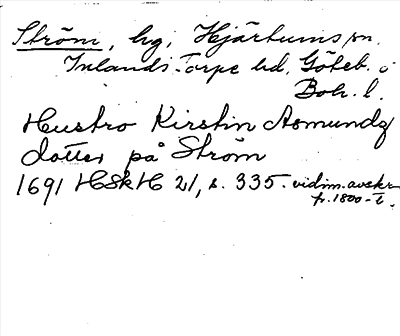 Ström, hg, Hjärtums sn.
Inlands Torpe hd, Göteb. o
Boh. l.
Hustro Kirstin Asmundz
dotter på Ström
1691 HSkH 21, s. 335. vidim. avskr.
fr. 1800-t.